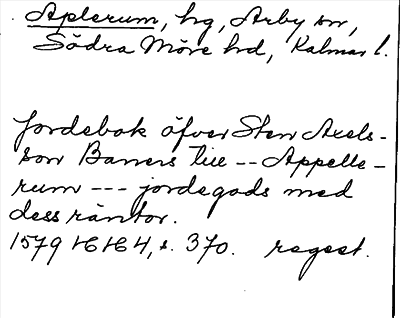 Aplerum, hg, Arby sn,
Södra Möre hd, Kalmar l.
Jordebok öfver Sten Axels-
son Baners till -- Appelle-
rum --- jordegods med
dess räntor.
1579 HH 4, s. 370. regest.